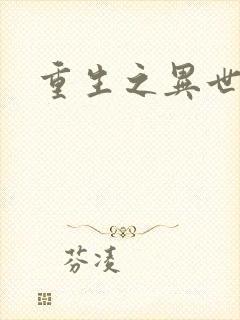 重生之異世
芬凌